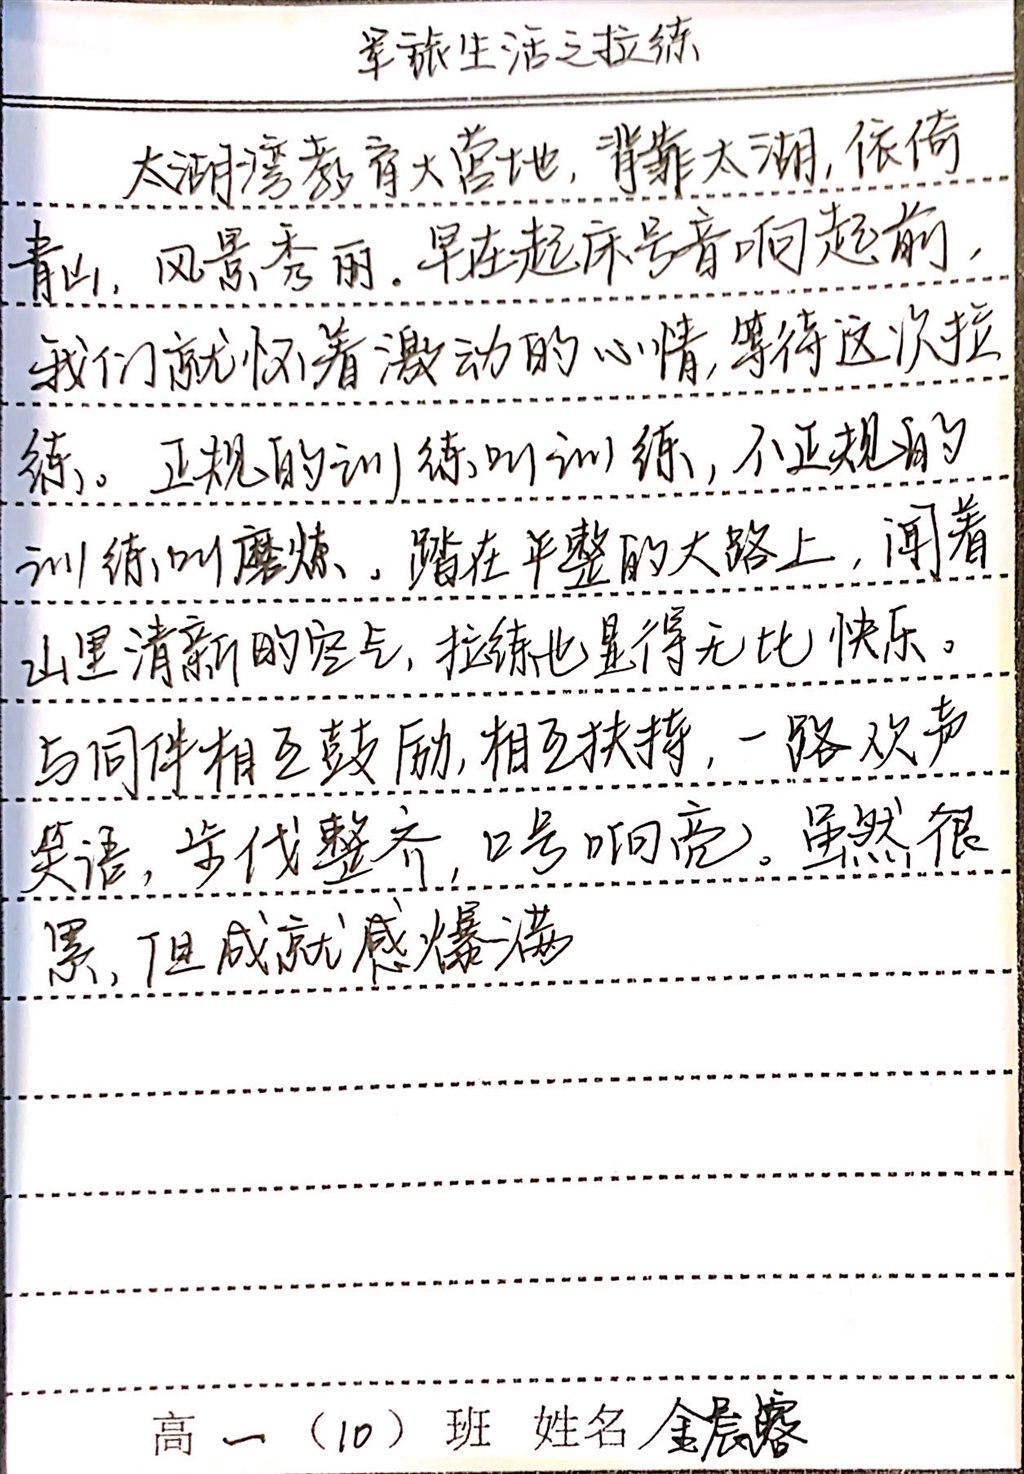 军旅生活之拉练
太湖湾教育大营地,背靠太湖,依倚
青山,风景秀丽.早在起床号音响起前,
我们就怀着激动的心情,等待这次拉
练。正规的训练叫训练,不正规的
训练叫磨炼。踏在平整的大路上,闻着
山里清新的空气,拉练也显得无比快乐。
与同伴相互鼓励,相互扶持,一路欢声
笑语,步伐整齐,口号响亮。虽然很
累,但成就感爆满
高一(10)班 姓名 金晨